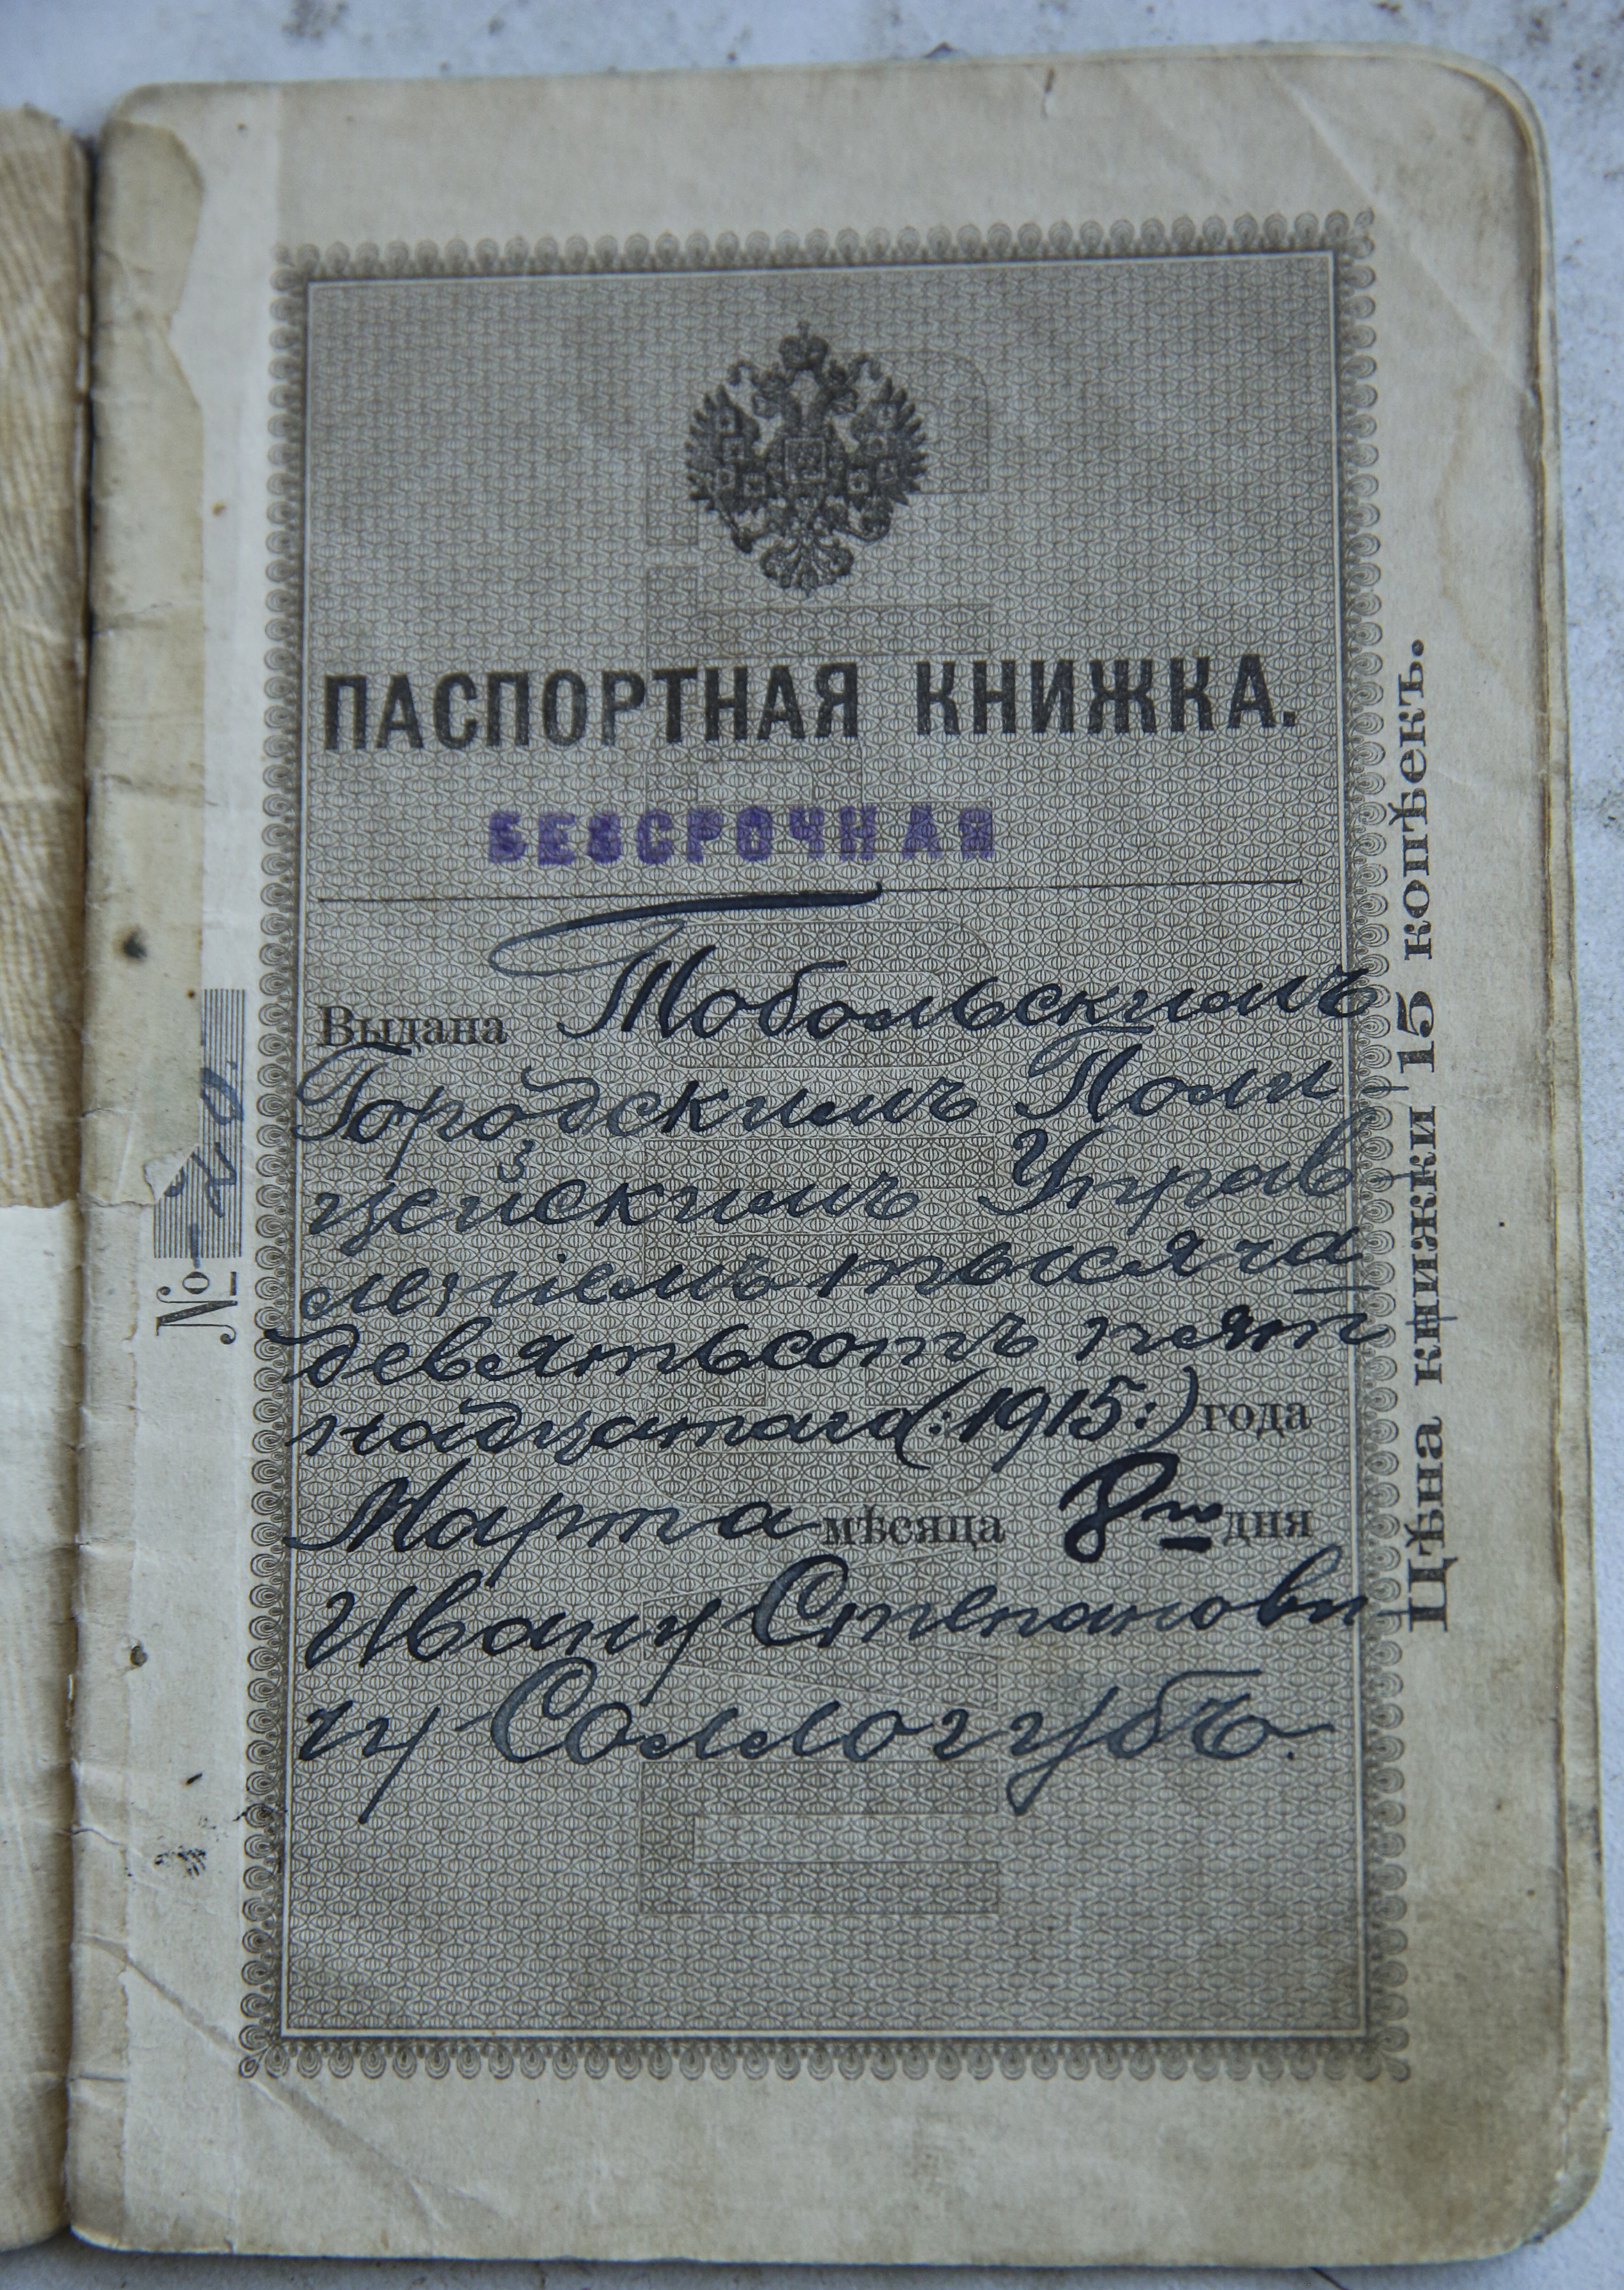 ПАСПОРТНАЯ КНИЖКА.
БЕЗСРОЧНАЯ
Выдана Тобольскимъ
Городскимъ Поли
цейскимъ Управ
леніемъ тысяча
девятьсотъ пят
надцатаго (:1915:) года
Марта мѣсяца 8го дня
Ивану Степанови
чу Соллогубъ.
№ 20.
Цѣна книжки 15 копѣекъ.